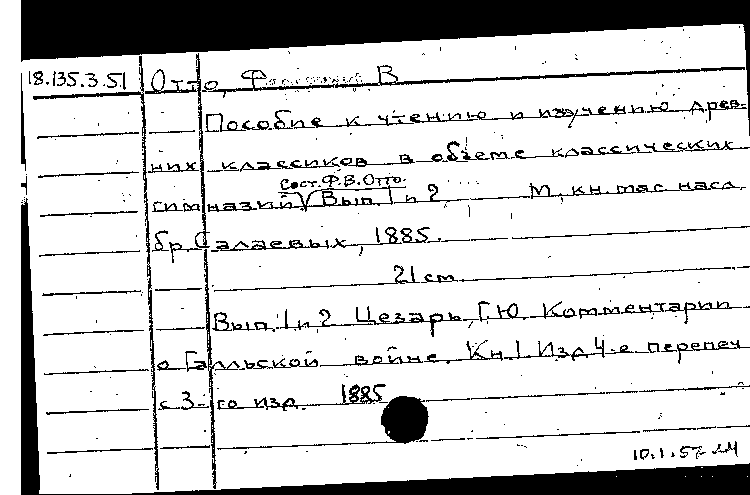 18.135.3.51 Отто, В
Пособие к чтению и изучению древ-
них классиков в объеме классических
Сост. Ф.В. Отто.
гимназий Вып. 1 и 2 М, кн. маг. насл.
бр. Салаевых, 1885.
21 cm.
Вып. 1 и 2 Цезарь, Г.Ю. Комментарии
о Галльской войне. Кн. 1. Изд 4-е перепеч
с 3-го изд. 1885
10.1.57